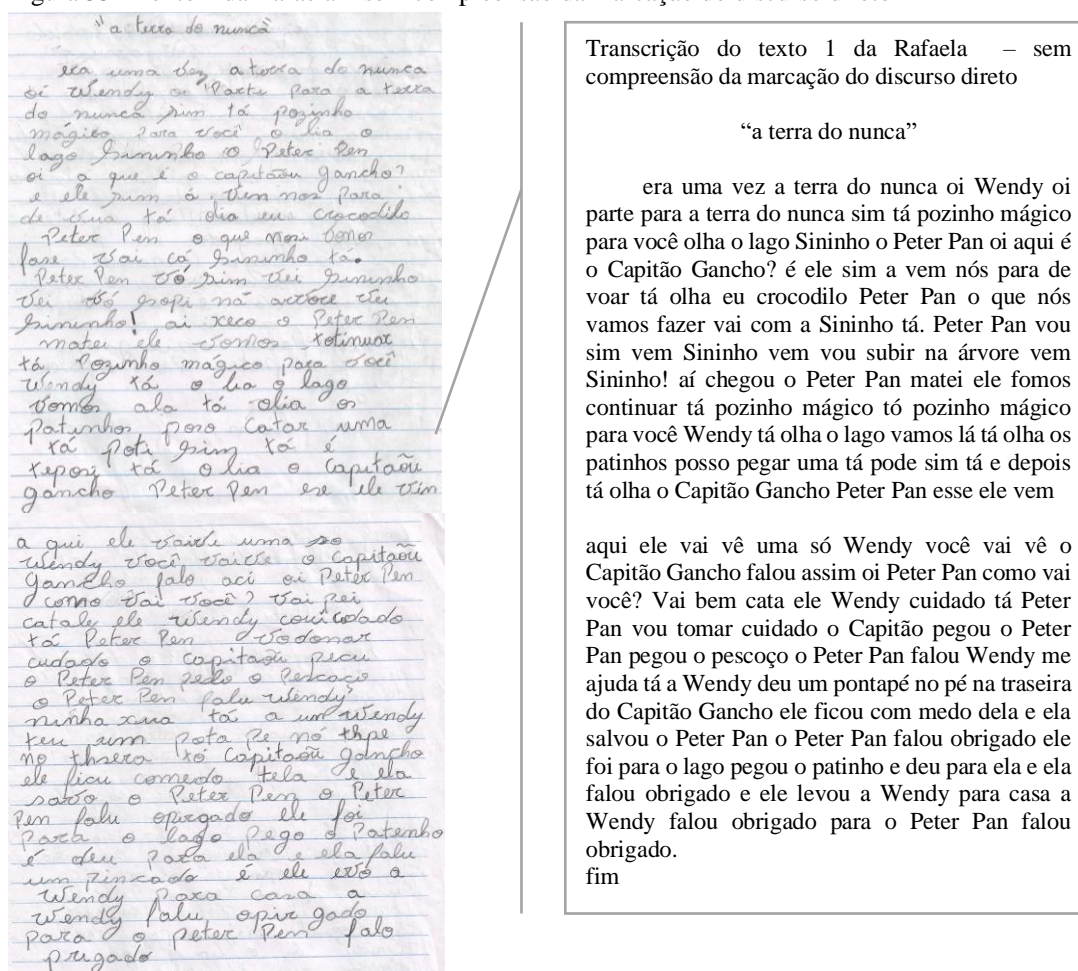 "a terra do nunca"
era uma vez a terra do nunca
oi Wendy oi Parti para a terra
do nunca sim tá pozinho
mágico Para você o lia o
lago Sininho o Peter Pen
oi a que é o capitãou gancho?
e ele sim á vem nos Para
de vua tá olia eu crocodilo
Peter Pen o que nosi vomos
fase vai cá Sininho ta.
Peter Pen vó sim vei Sininho
vei vó sopi ná arvore vei
Sininho! ai xeco o Peter Pen
matei ele vomos totinuar
tá Pozinho mágico para você
Wendy tá o lia o lago
vomos ala tá olia os
patinhos poso catar uma
tá poti sim tá é
teposi tá o lia o Capitaõu
gancho Peter Pen ese ele vim
a qui ele vaive uma so
Wendy você vaive o Capitaõu
Gancho falo aci oi Peter Pen
como vai você? vai pei
catale ele Wendy couidado
tá Peter Pen vodonar
cudado o capitaõu pecu
o Peter Pen pedo o Pescoço
o Peter Pen falu Wendy
ninha xua tá a um Wendy
teu um pota pe no thpe
no thsera tó Capitaõu gancho
ele ficu comedo tela e ela
savo o Peter Pen o Peter
Pen falu opirgado ele foi
para o lago Pego o Patenho
é deu para ela e ela falu
um pincado é ele evó a
Wendy para casa a
Wendy falu opir gado
para o peter Pen falo
prigado
Transcrição do texto 1 da Rafaela – sem
compreensão da marcação do discurso direto
“a terra do nunca”
era uma vez a terra do nunca oi Wendy oi
parte para a terra do nunca sim tá pozinho mágico
para você olha o lago Sininho o Peter Pan oi aqui é
o Capitão Gancho? é ele sim a vem nós para de
voar tá olha eu crocodilo Peter Pan o que nós
vamos fazer vai com a Sininho tá. Peter Pan vou
sim vem Sininho vem vou subir na árvore vem
Sininho! aí chegou o Peter Pan matei ele fomos
continuar tá pozinho mágico tó pozinho mágico
para você Wendy tá olha o lago vamos lá tá olha os
patinhos posso pegar uma tá pode sim tá e depois
tá olha o Capitão Gancho Peter Pan esse ele vem
aqui ele vai vê uma só Wendy você vai vê o
Capitão Gancho falou assim oi Peter Pan como vai
você? Vai bem cata ele Wendy cuidado tá Peter
Pan vou tomar cuidado o Capitão pegou o Peter
Pan pegou o pescoço o Peter Pan falou Wendy me
ajuda tá a Wendy deu um pontapé no pé na traseira
do Capitão Gancho ele ficou com medo dela e ela
salvou o Peter Pan o Peter Pan falou obrigado ele
foi para o lago pegou o patinho e deu para ela e ela
falou obrigado e ele levou a Wendy para casa a
Wendy falou obrigado para o Peter Pan falou
obrigado.
fim